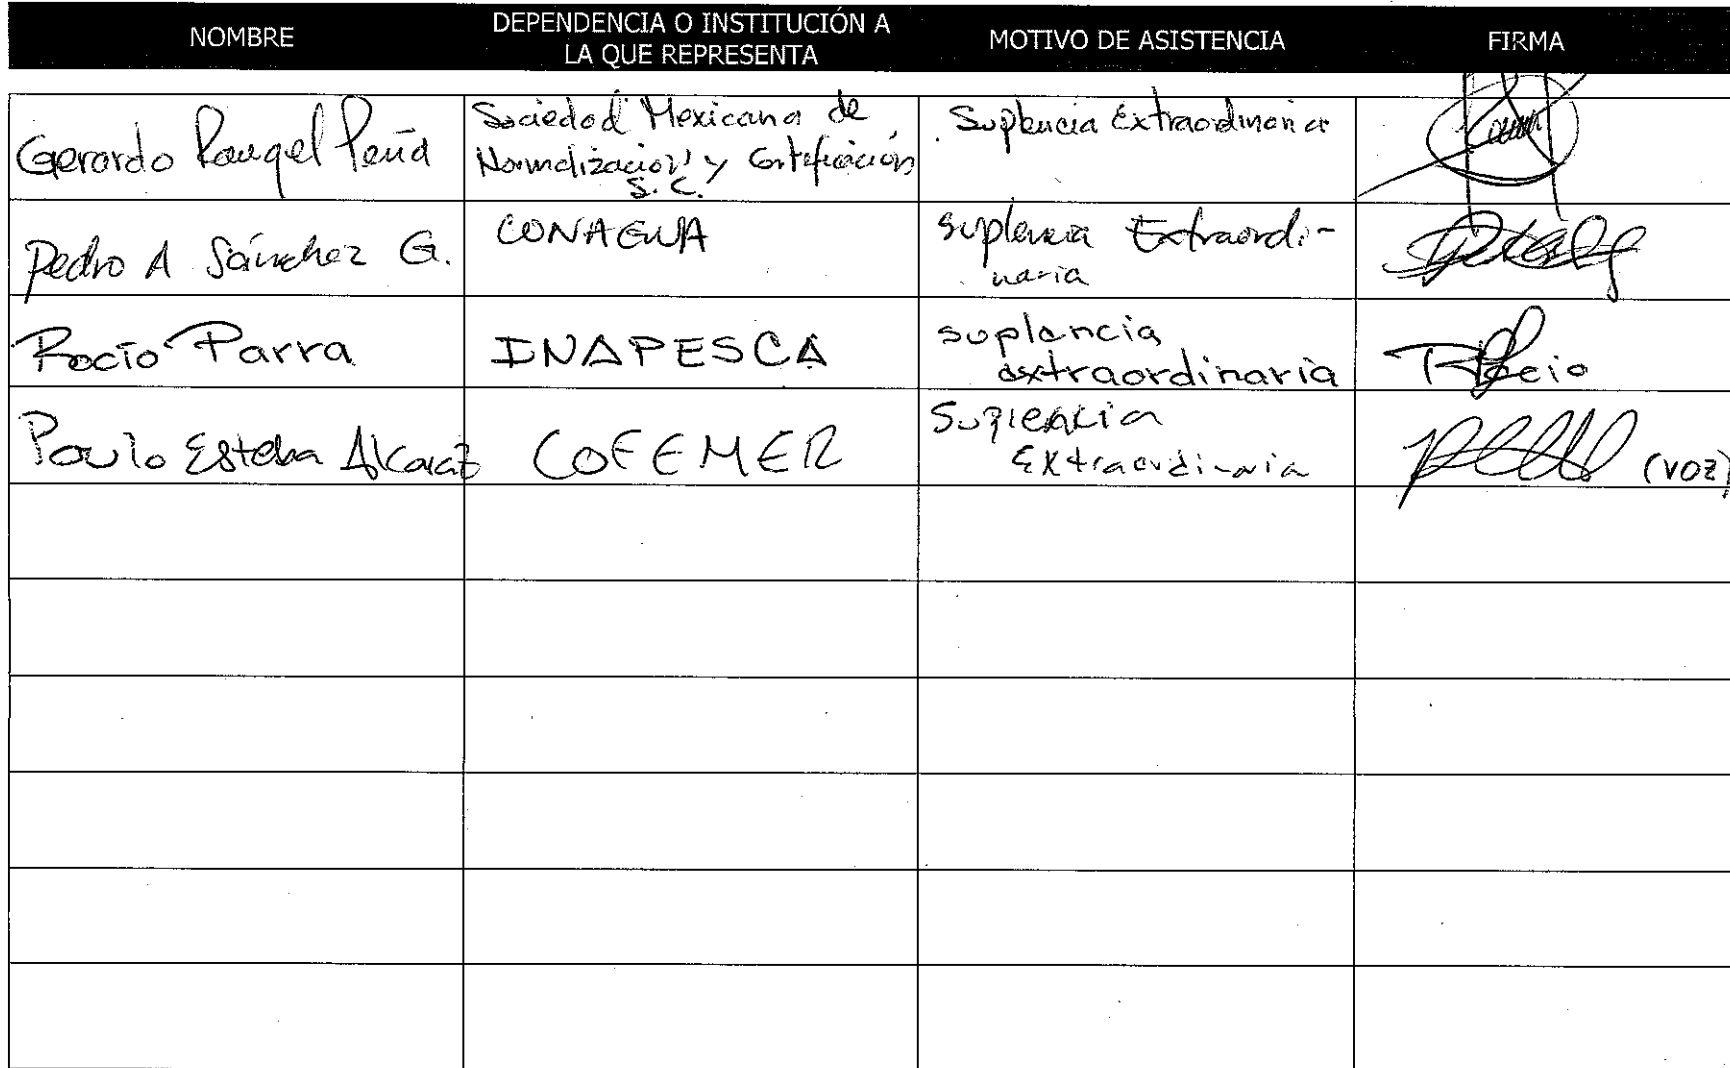 NOMBRE
DEPENDENCIA O INSTITUCIÓN A
LA QUE REPRESENTA
MOTIVO DE ASISTENCIA
FIRMA
Gerardo Rangel Peña
Sociedad Mexicana de
Normalización y Certificación
S.C.
Suplencia Extraordinaria
Pedro A Sánchez G.
CONAGUA
suplencia Extraordi-
naria
Rocío Parra
INAPESCA
suplencia
extraordinaria
Rocio
Paulo Esteban Alcaraz
COFEMER
Suplencia
Extraordinaria
(voz)